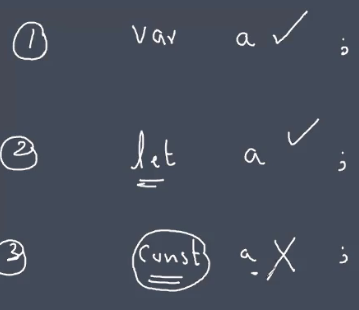 ① var a ✓ ;
② let a ✓ ;
③ const a X ;